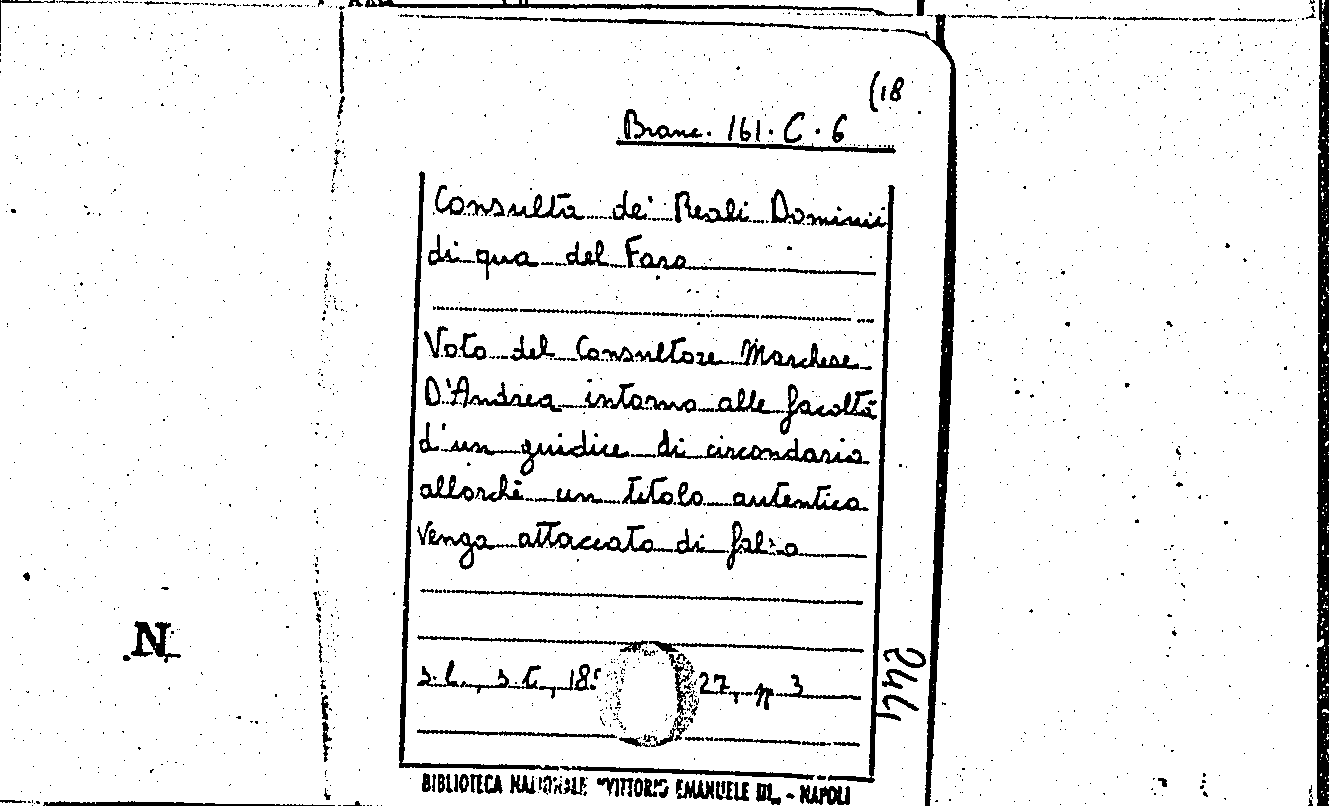 (18
Branc. 161. C. 6
Consulta de' Reali Dominii
di qua del Faro
Voto del Consultore Marchese
D'Andrea intorno alle facoltà
d'un guidice di circondario
allorchè un titolo autentico
venga attaccato di falso
s.l., s.t., 27, p 3
N
BIBLIOTECA NAZIONALE "VITTORIO EMANUELE III„ - NAPOLI